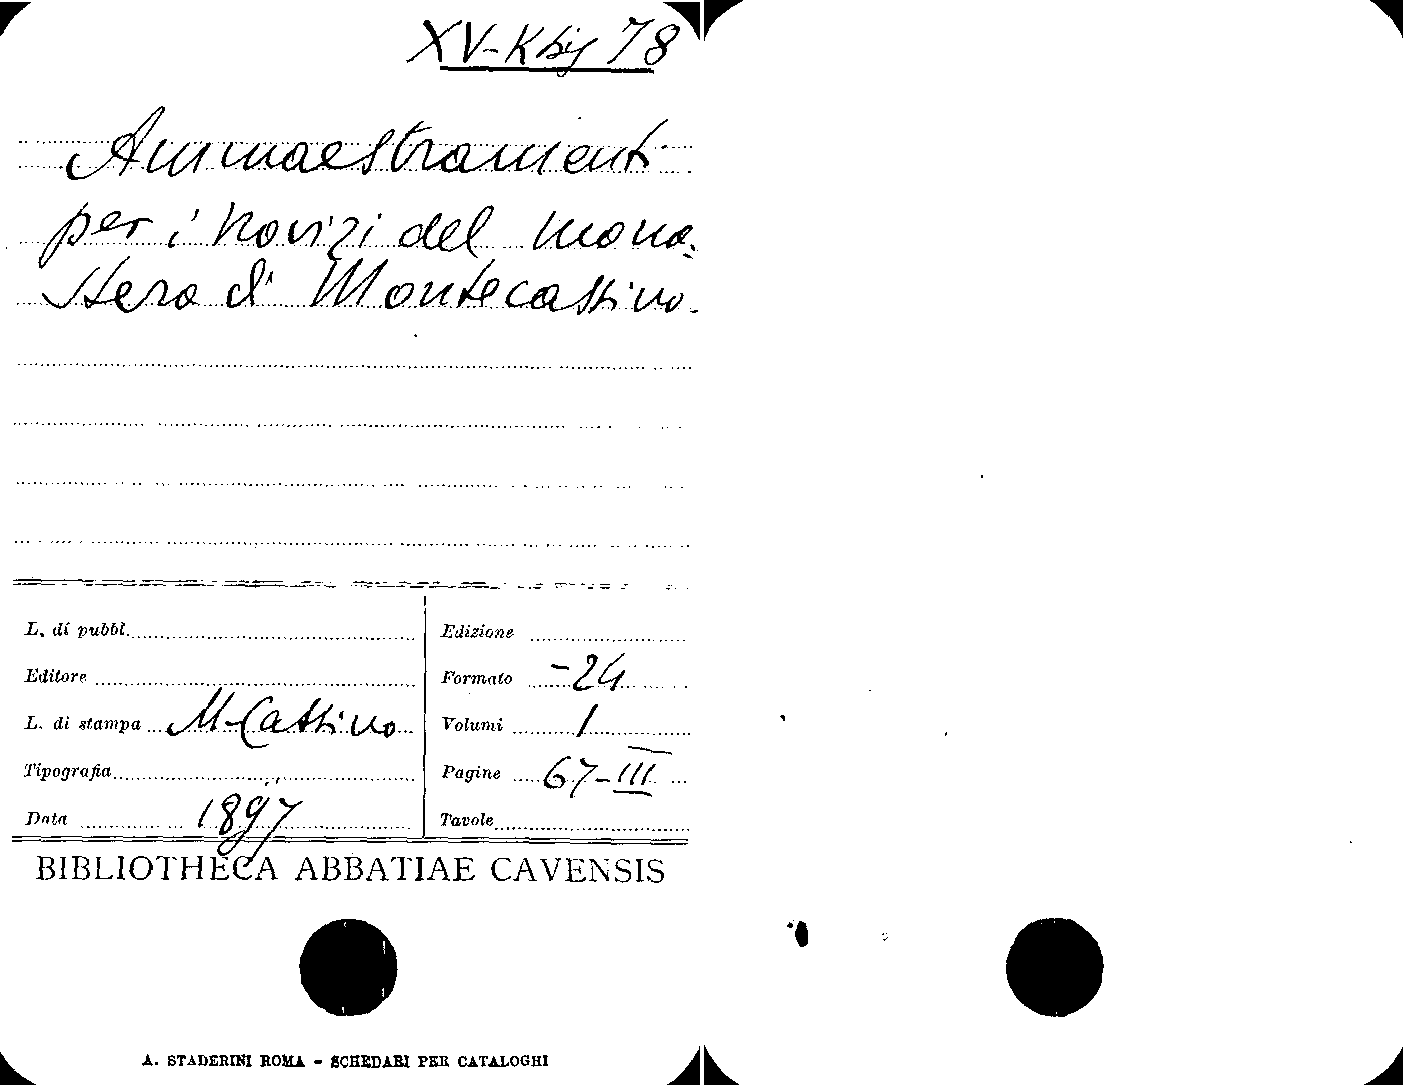 XV-K bis 78
Ammaestramenti
per i novizi del mona-
stero di Montecassino.
L. di pubbl.
Edizione
Editore
Formato -24
L. di stampa M-Cassino
Volumi 1
Tipografia
Pagine 67-III
Data 1897
Tavole
BIBLIOTHECA ABBATIAE CAVENSIS
A. STADERINI ROMA - SCHEDARI PER CATALOGHI